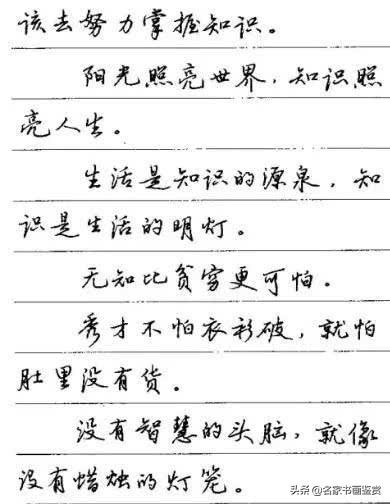 该去努力掌握知识。
阳光照亮世界，知识照
亮人生。
生活是知识的源泉，知
识是生活的明灯。
无知比贫穷更可怕。
秀才不怕衣衫破，就怕
肚里没有货。
没有智慧的头脑，就像
没有蜡烛的灯笼。
头条 @名家书画鉴赏